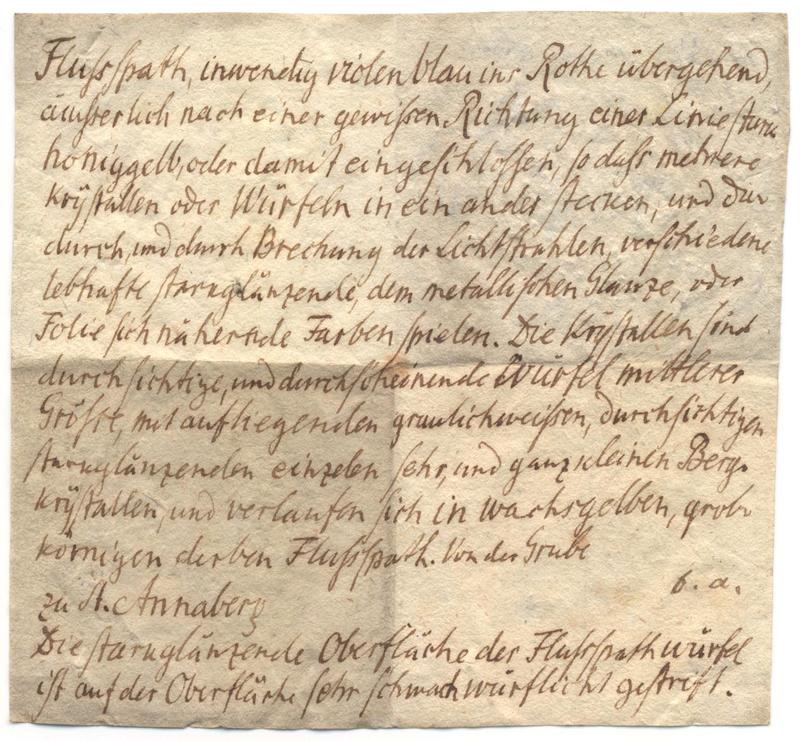 Flussspath, inwendig violenblau ins Rothe übergehend,
äusserlich nach einer gewissen Richtung einer Linie stark
honiggelb, oder damit eingeschlossen, so dass mehrere
Krÿstallen oder Würfeln in einander stecken, und da-
durch, und durch Brechung der Lichtstrahlen, verschiedene
lebhafte starkglänzende, dem metallischen Glanze, oder
Folie sich nähernde Farben spielen. Die Krÿstallen sind
durchsichtige, und durchscheinende Würfel mittlerer
Grösse, mit aufliegenden graulichweissen, durchsichtigen
starkglänzenden einzelen sehr, und ganz kleinen Berg-
krÿstallen, und verlaufen sich in wachsgelben, grob-
körnigen derben Flussspath. Von der Grube
6. a.
zu St. Annaberg
Die starkglänzende Oberfläche der Flussspathwürfel
ist auf der Oberfläche sehr schwach würflicht gestrift.